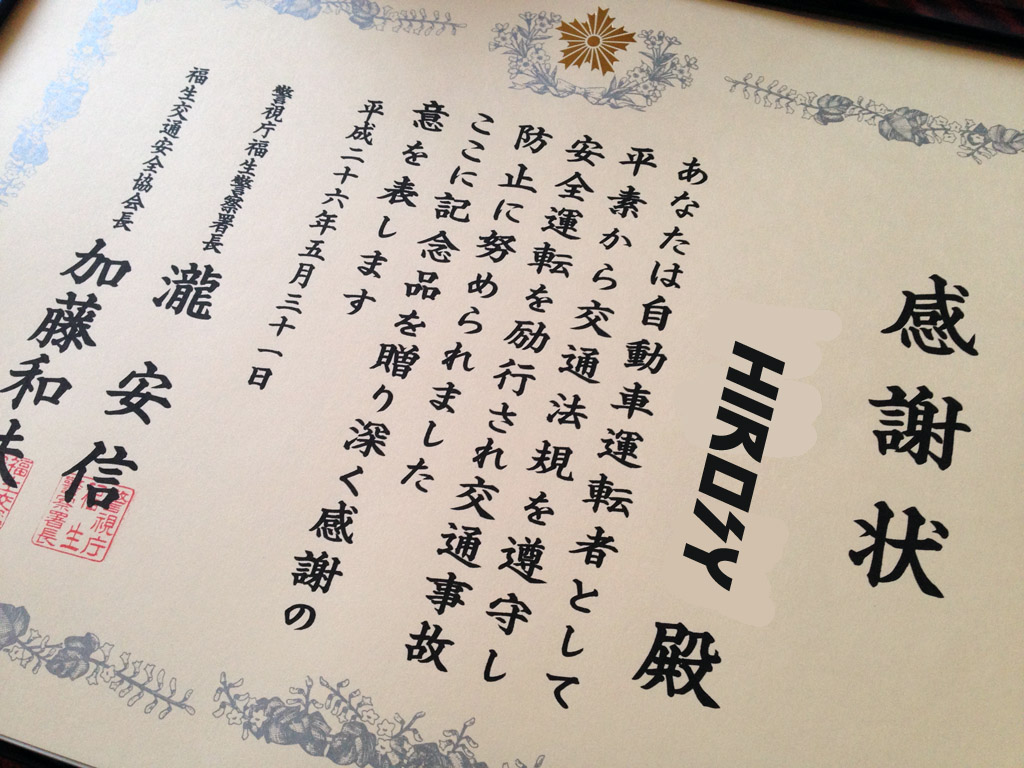 感謝状
HIROSY 殿
あなたは自動車運転者として
平素から交通法規を遵守し
安全運転を励行され交通事故
防止に努められました
ここに記念品を贈り深く感謝の
意を表します
平成二十六年五月三十一日
警視庁福生警察署長 瀧 安信
福生交通安全協会長 加藤和夫
警視庁
福生
警察署長